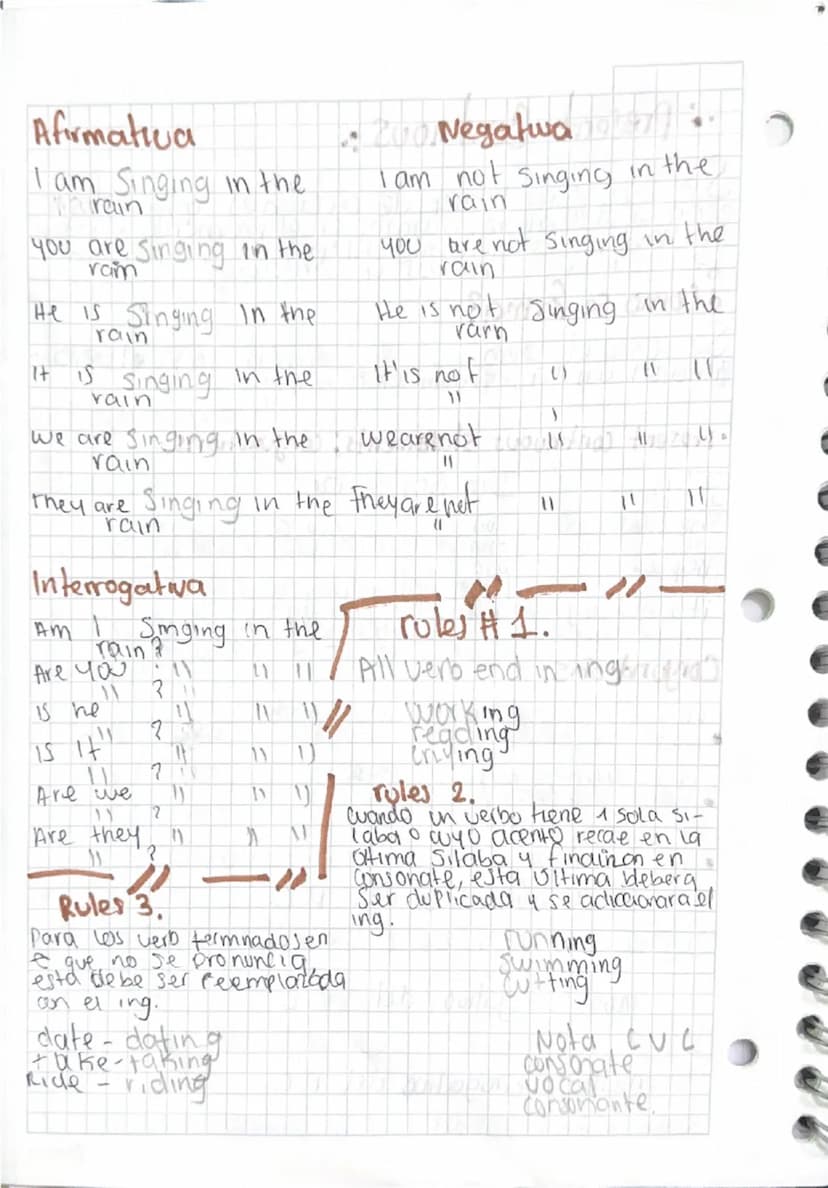 Afirmativa .: Negativa :.
I am Singing in the I am not Singing in the
rain rain
you are Singing in the you are not Singing in the
rain rain
He is Singing In the He is not Singing in the
rain rain
It is singing in the It'is not " " "
rain "
we are Singing in the : we are not " " ".
rain "
They are Singing in the They are not " " "
rain "
Interrogativa
Am I Singing in the
rain?
Are you " " "
" ?
is he " " "
" ?
is It " " "
" ?
Are we " " "
" ?
Are they " " "
" ?
rules # 1.
All verb end in ing
working
reading
crying
rules 2.
Cuando un verbo tiene 1 sola si-
laba o cuyo acento recae en la
última silaba y finalizan en
consonate, esta última debera
Ser duplicada y se adiccionara el
ing.
running
swimming
cutting
Nota C V C
consonate
vocal
consonante.
Rules 3.
Para los verb termnados en
e que no se pronuncia
esta debe ser reemplazada
con el ing.
date - dating
take - taking
Ride - riding